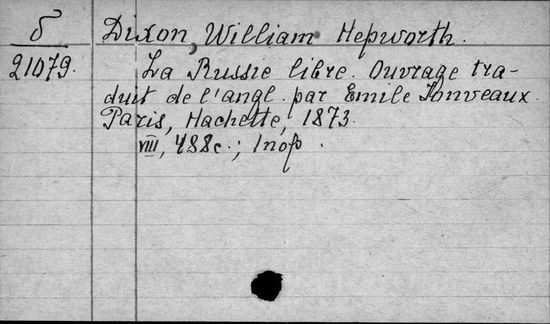 б Dixon, William Hepworth.
21079. La Russie libre. Ouvrage tra-
duit de l'angl. par Emile Jonveaux.
Paris, Hachette, 1873.
VIII, 488c.; Inof.